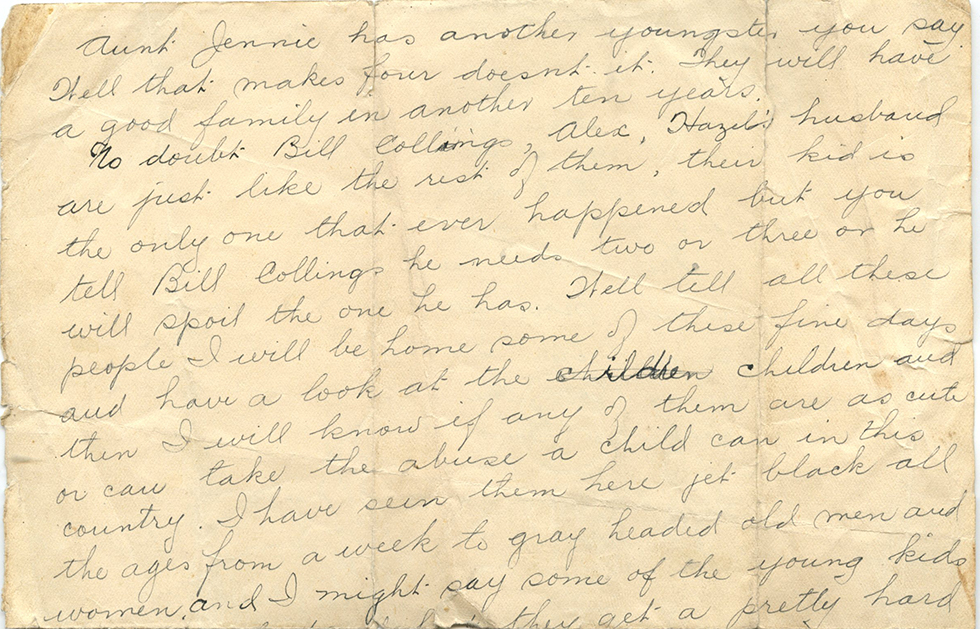 Aunt Jennie has another youngster you say.
Well that makes four doesnt it. They will have
a good family in another ten years.
No doubt Bill Collings, Alex, Hazel's husband
are just like the rest of them, their kid is
the only one that ever happened but you
tell Bill Collings he needs two or three or he
will spoil the one he has. Well tell all these
people I will be home some of these fine days
and have a look at the children children and
then I will know if any of them are as cute
or can take the abuse a child can in this
country. I have seen them here jet black all
the ages from a week to gray headed old men and
women, and I might say some of the young kids
they get a pretty hard